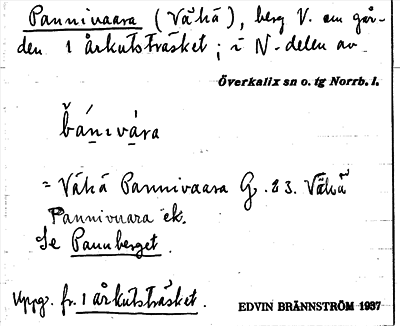 Pannivaara (Vähä), berg V. om går-
den 1 årkutsträsket; i N-delen av
Överkalix sn o. tg Norrb. l.
b̌ánɪvára
= Vähä Pannivaara G. 23. Vähä
Pannivuara ek.
Se Pannberget.
Uppg. fr. 1 årkutsträsket.
EDVIN BRÄNNSTRÖM 1937